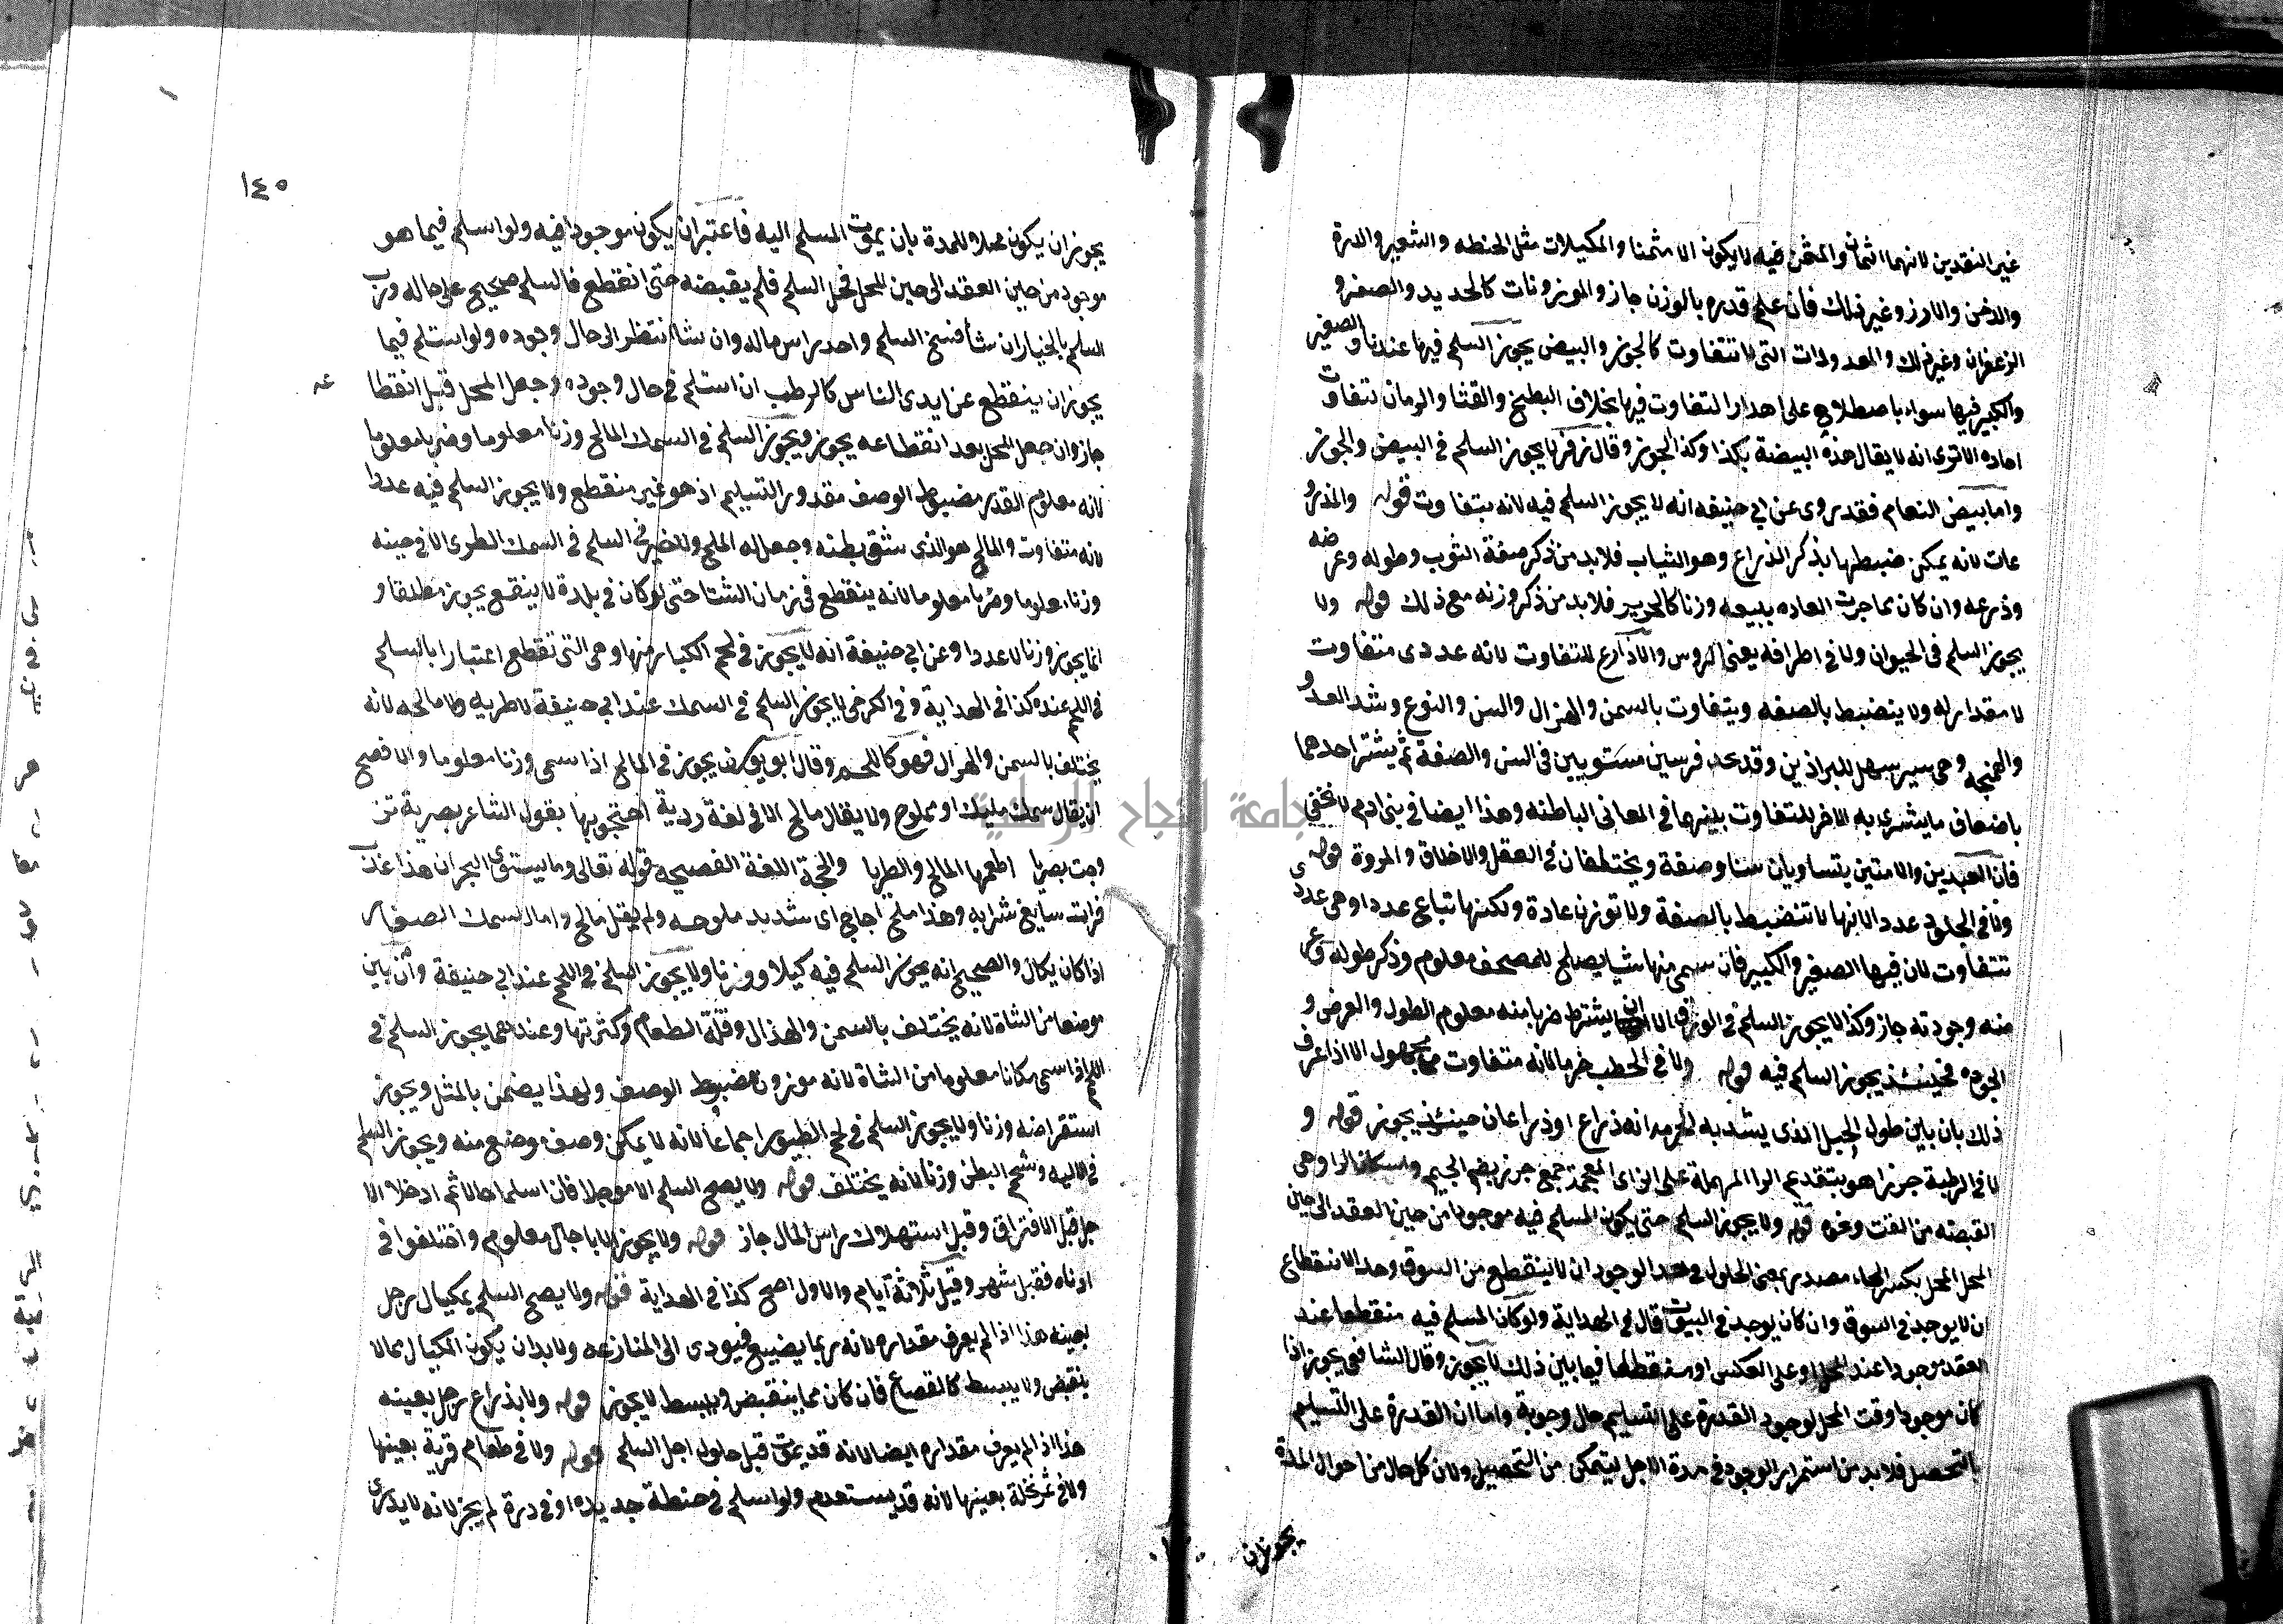 غير النقدين لانهما اثمان والمثمن فيه لا يكون الا مثمنا والمكيلات مثل الحنطه والشعير والدرة
والدخن والارز وغير ذلك فان علم قدره بالوزن جاز والموزونات كالحديد والصفر و
الزعفران وغير ذلك والمعدودات التي لا تتفاوت كالجوز والبيض يجوز السلم فيها عندنا والصغير
والكبير فيها سواء باصطلاح على اهدار التفاوت فيها بخلاف البطيخ والقثا والرمان لتفاوت
احاده الا ترى انه لا يقال هذه البيضة بكذا وكذا الجوز وقال زفر لا يجوز السلم في البيض والجوز
واما بيض النعام فقد روى عن ابي حنيفه انه لا يجوز السلم فيه لانه يتفاوت قوله والمذرو
عات لانه يمكن ضبطها بذكر الذراع وهو الثياب فلا بد من ذكر صفة الثوب وطوله وعرضه
وذرعه وان كان مما جرت العاده ببيعه وزنا كالحرير فلا بد من ذكر وزنه مع ذلك قوله ولا
يجوز السلم في الحيوان ولا في اطرافه يعني الروس والاكارع للتفاوت لانه عددى متفاوت
لا مقدار له ولا ينضبط بالصفه ويتفاوت بالسمن والهزال والسن والنوع وشد العدو
والهملجه وهي سير سهل للبراذين وقد يجد فرسين مستويين في السن والصفة ثم يشترا احدهما
باضعاف ما يشترى به الاخر للتفاوت بينهما في المعاني الباطنه وهذا ايضا في بني ادم لا يخفي
فان العبدين والامتين يتساويان سنا وصفة ويختلفان في العقل والاخلاق والمروة قوله
ولا في الجلود عددا لانها لا تنضبط بالصفة ولا توزن عادة ولكنها تباع عددا وهي عددى
تتفاوت لان فيها الصغير والكبير فان سمى منها شيا يصلح للمصحف معلوم وذكر طوله وعر
ضه وجودته جاز وكذا لا يجوز السلم في الورق الا ان يشترط ضربا منه معلوم الطول والعرض و
الجوده فحينئذ يجوز السلم فيه قوله ولا في الحطب حزما لانه متفاوت مجهول الا اذا عرف
ذلك بان بين طول الحبل الذى يشد به الحزمه انه ذراع او ذراعان حينئذ يجوز قوله و
لا في الرطبة جرزا هو بتقديم الرا المهملة على الزاى المعجمة جمع جرز بضم الجيم واسكان الرا وهي
القبضه من القت وغيره قوله ولا يجوز السلم حتى يكون المسلم فيه موجودا من حين العقد الى حين
المحل المحل بكسر الحاء مصدر بمعنى الحلول وحد الوجود ان لا ينقطع من السوق وحد الانقطاع
ان لا يوجد في السوق وان كان يوجد في البيوت قال في الهداية ولو كان المسلم فيه منقطعا عند
العقد موجودا عند المحل او على العكس او منقطعا فيما بين ذلك لا يجوز وقال الشافعي يجوز اذا
كان موجودا وقت المحل لوجود القدرة على التسليم حال وجوبه ولنا ان القدرة على التسليم
بالتحصيل فلا بد من استمرار الوجود في مدة الاجل ليتمكن من التحصيل ولان كل حال من احوال المدة
يجوز ان
١٤٥
يجوز ان يكون محلا للمدة بان يموت المسلم اليه فاعتبر ان يكون موجودا فيه ولو اسلم فيما هو
موجود من حين العقد الى حين المحل فحل السلم فلم يقبضه حتى انقطع فالسلم صحيح على حاله ورب
السلم بالخيار ان شا فسخ السلم واخد راس ماله وان شا انتظر الى حال وجوده ولو استلم فيما
يجوز ان ينقطع عن ايدى الناس كالرطب ان استلم في حال وجوده وجعل المحل قبل انقطا
عه
جاز وان جعل المحل بعد انقطاعه يجوز ويجوز السلم في السمك المالح وزنا معلوما وضربا معلوما
لانه معلوم القدر مضبوط الوصف مقدور التسليم اذ هو غير منقطع ولا يجوز السلم فيه عددا
لانه متفاوت والمالح هو الذى شق بطنه وجعل له الملح ولا خير في السلم في السمك الطرى الا في حينه
وزنا معلوما وضربا معلوما لانه ينقطع في زمان الشتا حتى لو كان في بلدة لا ينقطع يجوز مطلقا و
انما يجوز وزنا لا عددا وعن ابي حنيفة انه لا يجوز في لحم الكبار منها وهي التي تقطع اعتبارا بالسلم
في اللحم عنده كذا في الهداية وفي الكرخي لا يجوز السلم في السمك عند ابي حنيفة لا طريه ولا مالحه لانه
يختلف بالسمن والهزال فهو كاللحم وقال ابو يوسف يجوز في المالح اذا سمى وزنا معلوما والافصح
ان يقال سمك مليح او مملوح ولا يقال مالح الا في لغة ردية احتجوا بها بقول الشاعر بصرية تز
وجت بصريا اطعمها المالح والطريا والحجة اللغة الفصيحة قوله تعالى وما يستوى البحران هذا عذب
فرات سايغ شرابه وهذا ملح اجاج اى شديد ملوحه ولم يقل مالح واما السمك الصغار
اذا كان يكال والصحيح انه يجوز السلم فيه كيلا ووزنا ولا يجوز السلم في اللحم عند ابي حنيفة وان بين
موضعا من الشاة لانه يختلف بالسمن والهذال وقلة الطعام وكثرتها وعندهما يجوز السلم في
اللحم اذا سمى مكانا معلوما من الشاة لانه موزون مضبوط الوصف ولهذا يضمن بالمثل ويجوز
استقراضه وزنا ولا يجوز السلم في لحم الطيور اجماعا لانه لا يمكن وصف موضع منه ويجوز السلم
في الاليه وشحم البطن وزنا لانه يختلف قوله ولا يصح السلم الا موجلا فان اسلما حالا ثم ادخلا الا
جل قبل الافتراق وقبل استهلاك راس المال جاز قوله ولا يجوز الا باجل معلوم واختلفوا في
ادناه فقيل شهر وقيل ثلاثة ايام والاول اصح كذا في الهداية قوله ولا يصح السلم بمكيال رجل
بعينه هذا اذا لم يعرف مقداره لانه ربما يضيع فيودى الى المنازعه ولا بد ان يكون المكيال مما لا
ينقبض ولا يبسط كالقصاع فان كان مما ينقبض ويبسط لا يجوز قوله ولا بذراع رجل بعينه
هذا اذا لم يعرف مقداره ايضا لانه قد يموت قبل حلول اجل السلم قوله ولا في طعام قرية بعينها
ولا في ثمر نخلة بعينها لانه قد يستعدم ولو اسلم في حنطة جديده او في درة لم يجز لانه لا يدرى
جامعة النجاح الوطنية